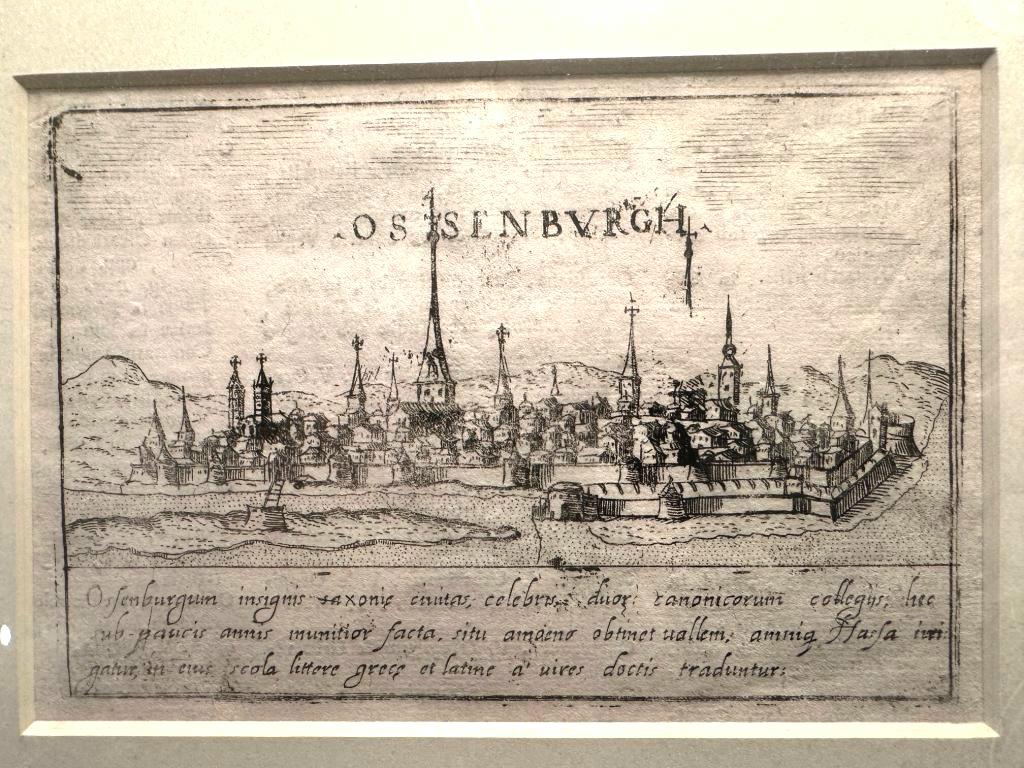 OSSENBVRGH
Ossenburgum insignis saxonię ciuitas, celebris duor: canonicorum collegijs, hec
sub paucis annis munitior facta, situ amoeno obtinet uallem, amniq Hassa irri
gatur, in eius scola littere gręcę et latine a uires doctis traduntur: